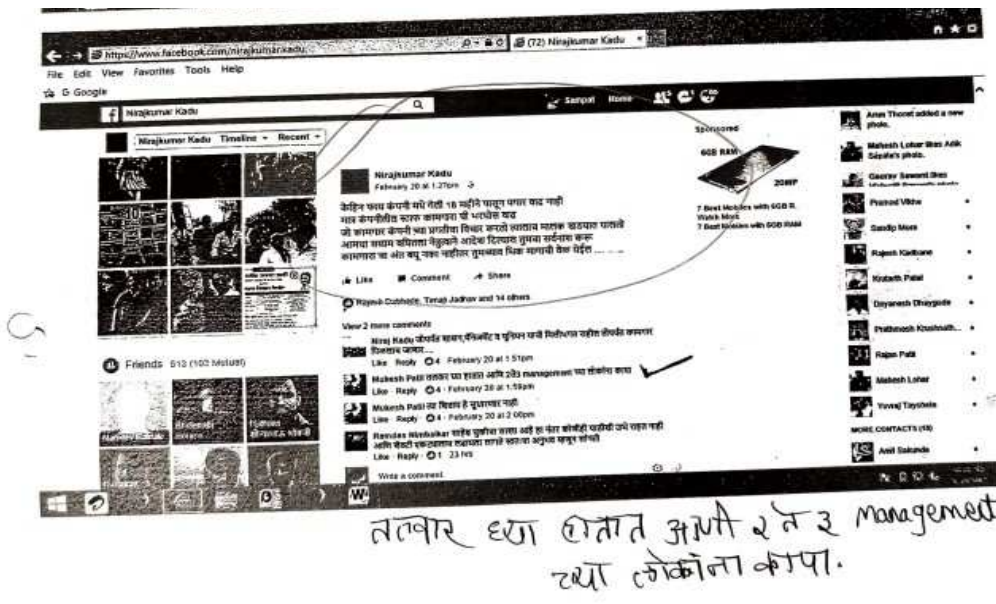 https://www.facebook.com/nirajkumar.kadu
(72) Nirajkumar Kadu
File Edit View Favorites Tools Help
G Google
Nirajkumar Kadu
Sampat Home
Nirajkumar Kadu Timeline Recent
Nirajkumar Kadu
February 20 at 1:27pm
कंपनी मधे गेली 18 महीने पासून पगार वाढ नाही
मात्र कंपनीतील स्टाफ कामगारा ची भरघोस वाढ
जो कामगार कंपनी च्या प्रगतीचा विचार करतो त्यालाच मालक खड्यात घालतो
आमचा सयम बघितला नेतृत्वाने आदेश दिल्यास तुमचा सर्वनाश करू
कामगारा चा अंत बघू नका नाहीतर तुमच्यावर भिक मागायची वेळ येईल
Like Comment Share
Rajesh Dabhade, Tanaji Jadhav and 14 others
View 2 more comments
Niraj Kadu जोपर्यंत मॅनेजमेंट व युनियन यांची मिलीभगत राहील तोपर्यंत कामगार
पिळला जाणार
Like Reply 4 February 20 at 1:51pm
Mukesh Patil तलवार घ्या हातात आणि 2ते3 management च्या लोकांना कापा
Like Reply 4 February 20 at 1:59pm
Mukesh Patil त्या शिवाय हे सुधारणार नाही
Like Reply 4 February 20 at 2:00pm
Ramdas Nimbalkar साहेब
आणि शेवटी एकट्यालाच लढायला लागते स्वतःचा अनुभव म्हणून सांगतो
Like Reply 1 23 hrs
Write a comment.
Friends 513 (102 Mutual)
Sponsored
6GB RAM
20MP
7 Best Mobiles with 6GB R.
Watch More
7 Best Mobiles with 6GB RAM
Arun Thorat added a new
photo.
Mahesh Lohar likes
photo.
Gaurav Sawant likes
Pramod Vikhe
Sandip More
Rajesh Kadbane
Krutarth Patal
Dayanesh Dhaygode
Prathmesh Krushnath...
Rajan Patil
Mahesh Lohar
Yuvraj Tayshete
MORE CONTACTS (18)
Amit Sakunde
तलवार घ्या हातात आणी २ ते ३ management
च्या लोकांना कापा.